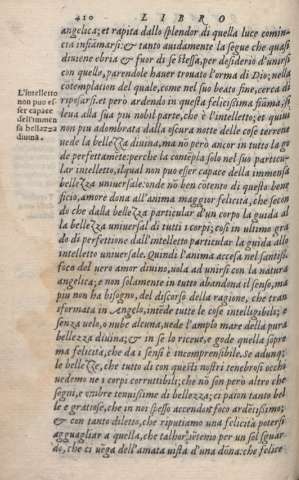 420 LIBRO
angelica; et rapita dallo splendor di quella luce comin-
cia infiāmarsi: & tanto auidamente la segue che quasi
diuiene ebria & fuor di se stessa, per desiderio d'unirsi
con quello, parendole hauer trouato l'orma di Dio; nella
cōtemplation del quale, come nel suo beato fine, cerca di
L'intelletto
non puo es-
ser capace
dell'immen
sa bellezza
diuina.
riposarsi. et però ardendo in questa felicissima fiāma, si
leua alla sua piu nobil parte, che è l'intelletto; et quiui
non piu adombrata dalla oscura notte delle cose terrene
uede la bellezza diuina, ma nō però ancor in tutto la go
de perfettamēte: perche la contēpla solo nel suo particu-
lar intelletto, ilqual non puo esser capace della immensa
bellezza uniuersale. onde nō ben cōtento di questo bene
ficio, amore dona all'anima maggior felicita, che secon
do che dalla bellezza particular d'un corpo la guida al
la bellezza uniuersal di tutti i corpi; cosi in ultimo gra
do di perfettione dall'intelletto particular la guida allo
intelletto uniuersale. Quindi l'anima accesa nel santiss.
foco del uero amor diuino, uola ad unirsi con la natura
angelica; e non solamente in tutto abandona il senso, ma
piu non ha bisogno, del discorso della ragione, che tran
sformata in Angelo, intēde tutte le cose intelligibili; e
senza uelo, o nube alcuna, uede l'āmpio mare della pura
bellezza diuina; & in se lo riceue, e gode quella supre
ma felicità, che da i sensi è incomprensibile. Se adunq;
le bellezze, che tutto dì con questi nostri tenebrosi occhi
uedemo ne i corpi corruttibili; che nō son però altro che
sogni, e ombre tenuissime di bellezza; ci paion tanto bel
le e gratiose, che in noi spesso accendon foco ardētissimo;
& con tanto diletto, che riputiamo una felicità potersi
agguagliar a quella, che talhor sētemo per un sol sguar-
do, che ci uēga dell'amata uista d'una dōna: che felice